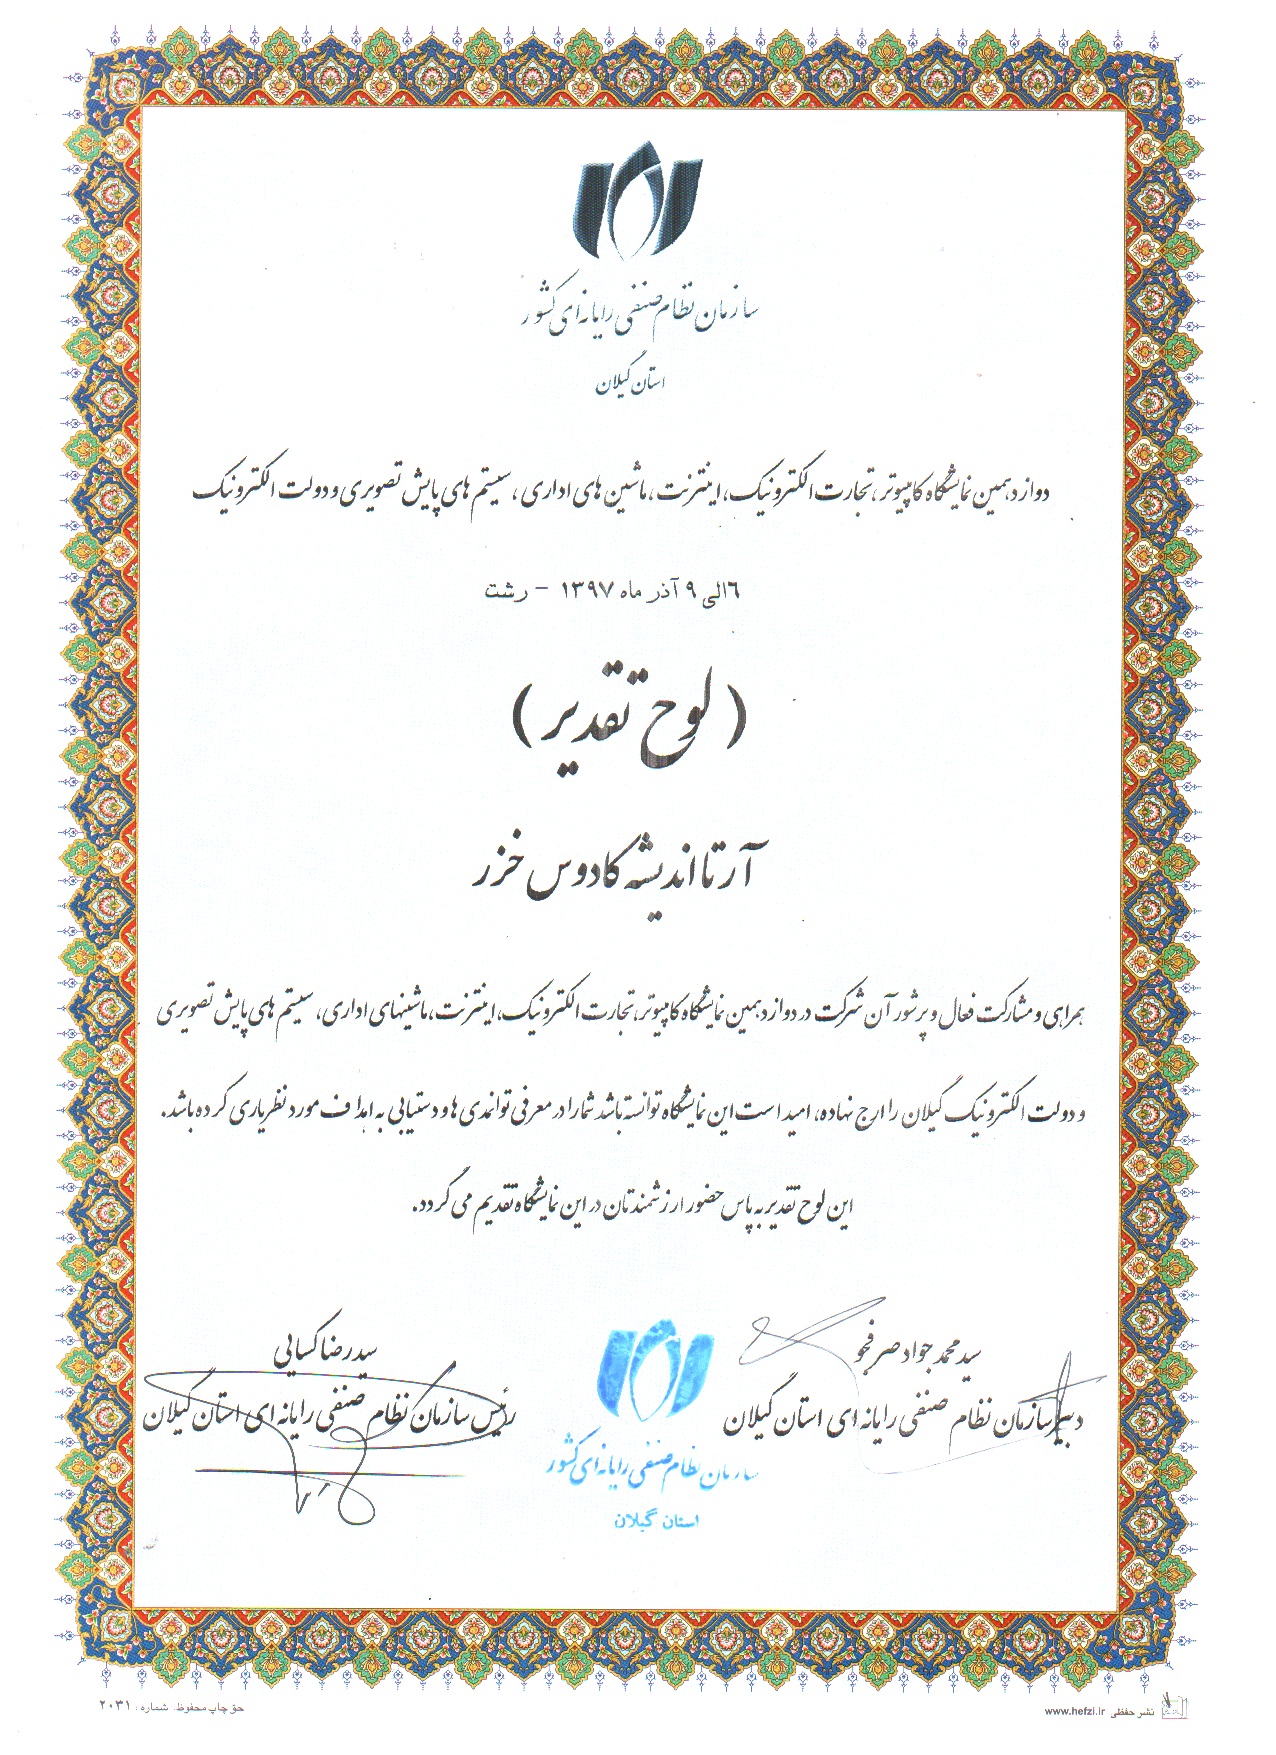 سازمان نظام صنفی رایانه ای کشور
استان گیلان
دوازدهمین نمایشگاه کامپیوتر، تجارت الکترونیک، اینترنت، ماشین های اداری، سیستم های پایش تصویری و دولت الکترونیک
۶ الی ۹ آذر ماه ۱۳۹۷ - رشت
( لوح تقدیر )
آرتا اندیشه کادوس خزر
همراهی و مشارکت فعال و پرشور آن شرکت در دوازدهمین نمایشگاه کامپیوتر، تجارت الکترونیک، اینترنت، ماشینهای اداری، سیستم های پایش تصویری
و دولت الکترونیک گیلان را ارج نهاده، امید است این نمایشگاه توانسته باشد شما را در معرفی توانمندی ها و دستیابی به اهداف مورد نظر یاری کرده باشد.
این لوح تقدیر به پاس حضور ارزشمندتان در این نمایشگاه تقدیم می گردد.
سید محمد جواد صرفجو
دبیر سازمان نظام صنفی رایانه ای استان گیلان
سید رضا کسایی
رئیس سازمان نظام صنفی رایانه ای استان گیلان
سازمان نظام صنفی رایانه ای کشور
استان گیلان
نشر حفظی www.hefzi.ir
حق چاپ محفوظ. شماره: ۲۰۳۱